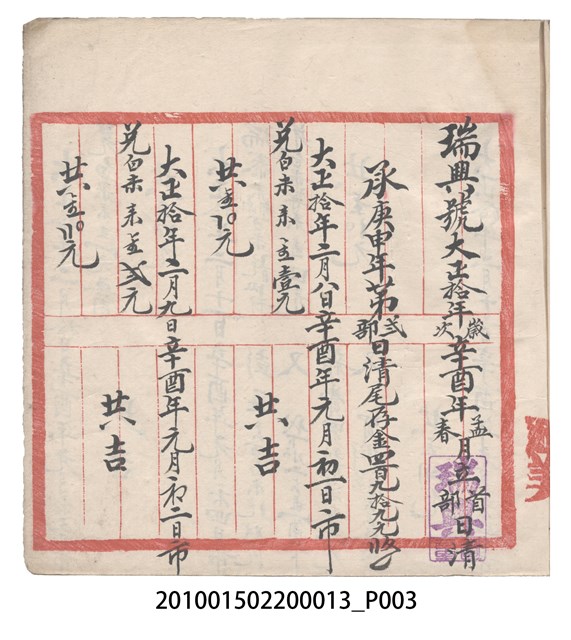 瑞興號大正拾年歲次辛酉年孟春月立首部日清
承庚申年第弍部日清尾存金四百九拾九元
大正拾年二月八日辛酉年元月初一日市
兌白米 來 壹元
共 元
共吉
大正拾年二月九日辛酉年元月初二日市
兌白米 來 弍元
共 元
共吉
瑞興
201001502200013_P003